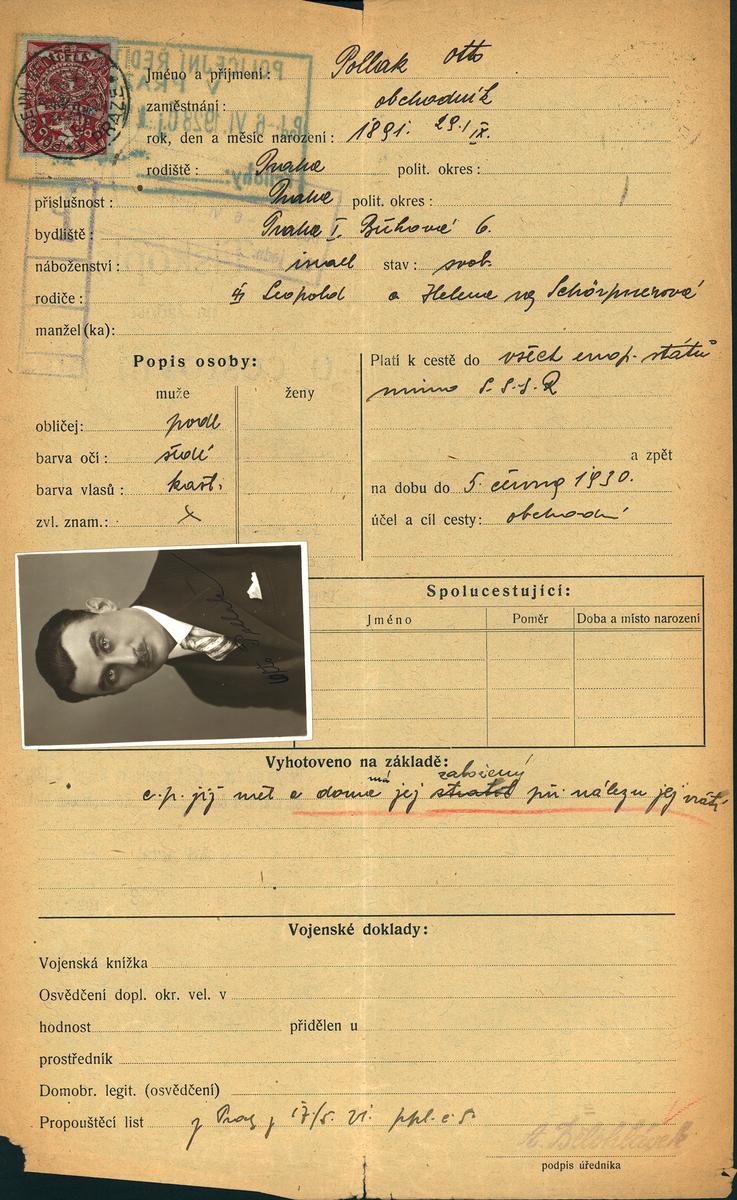 POLICEJNÍ ŘEDI
V PRAZE
-6 VI 1928
Jméno a příjmení: Pollak Otto
zaměstnání: obchodník
rok, den a měsíc narození: 1891. 29./IX.
rodiště: Praha polit. okres:
příslušnost: Praha polit. okres:
bydliště: Praha I. 6.
náboženství: israel stav: svob.
rodiče: Leopold a Helena
manžel(ka):
Popis osoby:
muže ženy
obličej: podl
barva očí: šedé
barva vlasů: kašt.
zvl. znam.: x
Platí k cestě do všech evrop. států
mimo S.S.S.R
a zpět
na dobu do 5. června 1930.
účel a cíl cesty: obchodní
Spolucestující:
Jméno Poměr Doba a místo narození
Vyhotoveno na základě:
má založený
c.p. již měl a doma jej ztratil při nálezu jej vrátí
Vojenské doklady:
Vojenská knížka
Osvědčení dopl. okr. vel. v
hodnost přidělen u
prostředník
Domobr. legit. (osvědčení)
Propouštěcí list
podpis úředníka